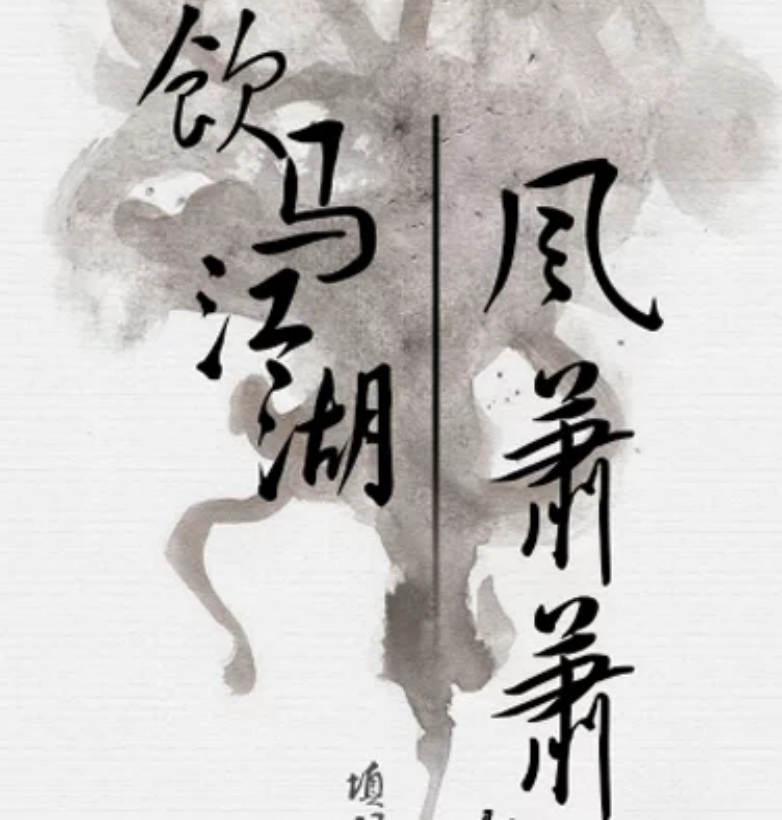 风萧萧
饮马江湖
填